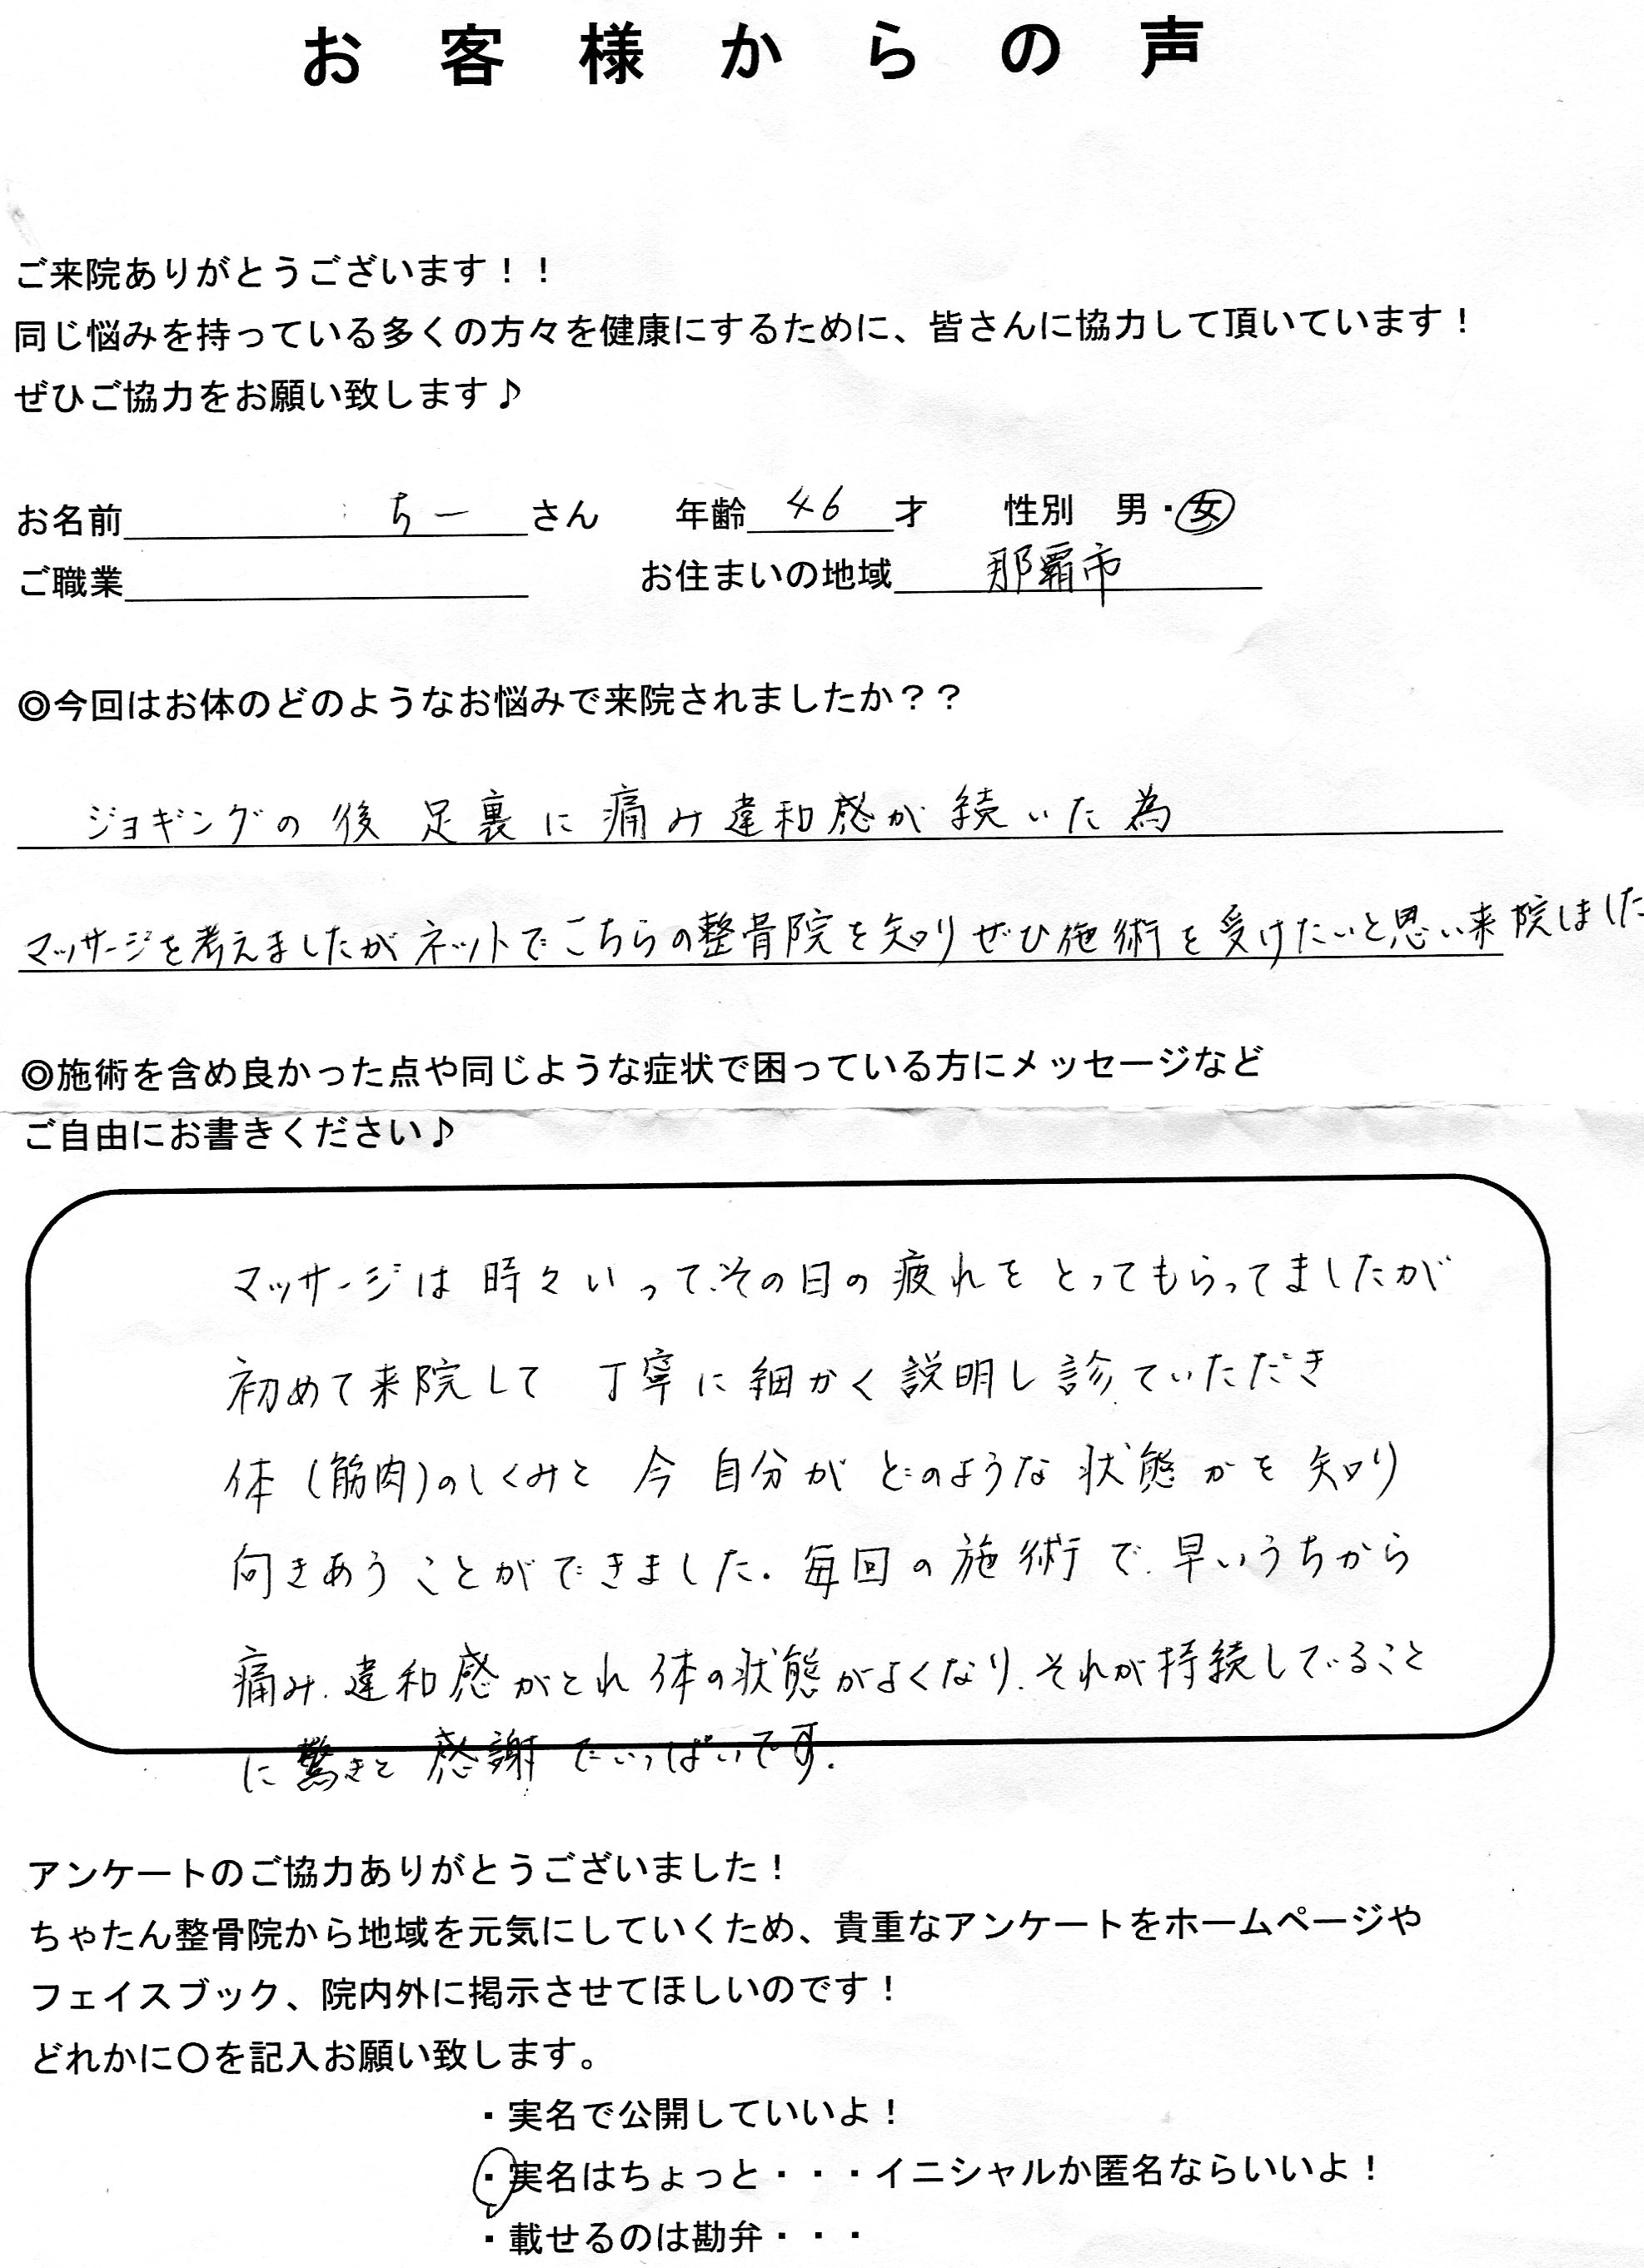 お客様からの声
ご来院ありがとうございます！！
同じ悩みを持っている多くの方々を健康にするために、皆さんに協力して頂いています！
ぜひご協力をお願い致します♪
お名前 ちー さん 年齢 46 才 性別 男・女
ご職業 お住まいの地域 那覇市
◎今回はお体のどのようなお悩みで来院されましたか？？
ジョギングの後 足裏に痛み違和感が続いた為
マッサージを考えましたがネットでこちらの整骨院を知りぜひ施術を受けたいと思い来院しました
◎施術を含め良かった点や同じような症状で困っている方にメッセージなど
ご自由にお書きください♪
マッサージは時々いって、その日の疲れをとってもらってましたが
初めて来院して 丁寧に細かく説明し診ていただき
体(筋肉)のしくみと 今 自分がどのような状態かを知り
向きあうことができました. 毎回の施術で、早いうちから
痛み、違和感がとれ体の状態がよくなり、それが持続していること
に驚きと感謝でいっぱいです.
アンケートのご協力ありがとうございました！
ちゃたん整骨院から地域を元気にしていくため、貴重なアンケートをホームページや
フェイスブック、院内外に掲示させてほしいのです！
どれかに○を記入お願い致します。
・実名で公開していいよ！
・実名はちょっと・・・イニシャルか匿名ならいいよ！
・載せるのは勘弁・・・